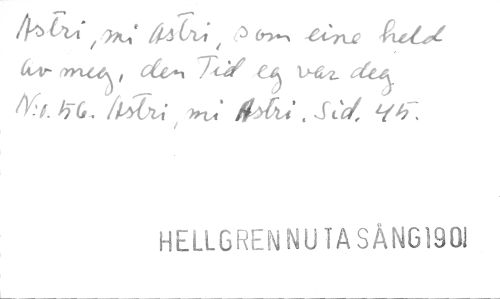 Astri, mi Astri, som eine held
av meg, den Tid eg var deg
N:o. 56. Astri, mi Astri. Sid. 45.
HELLGREN NUTA SÅNG 1901